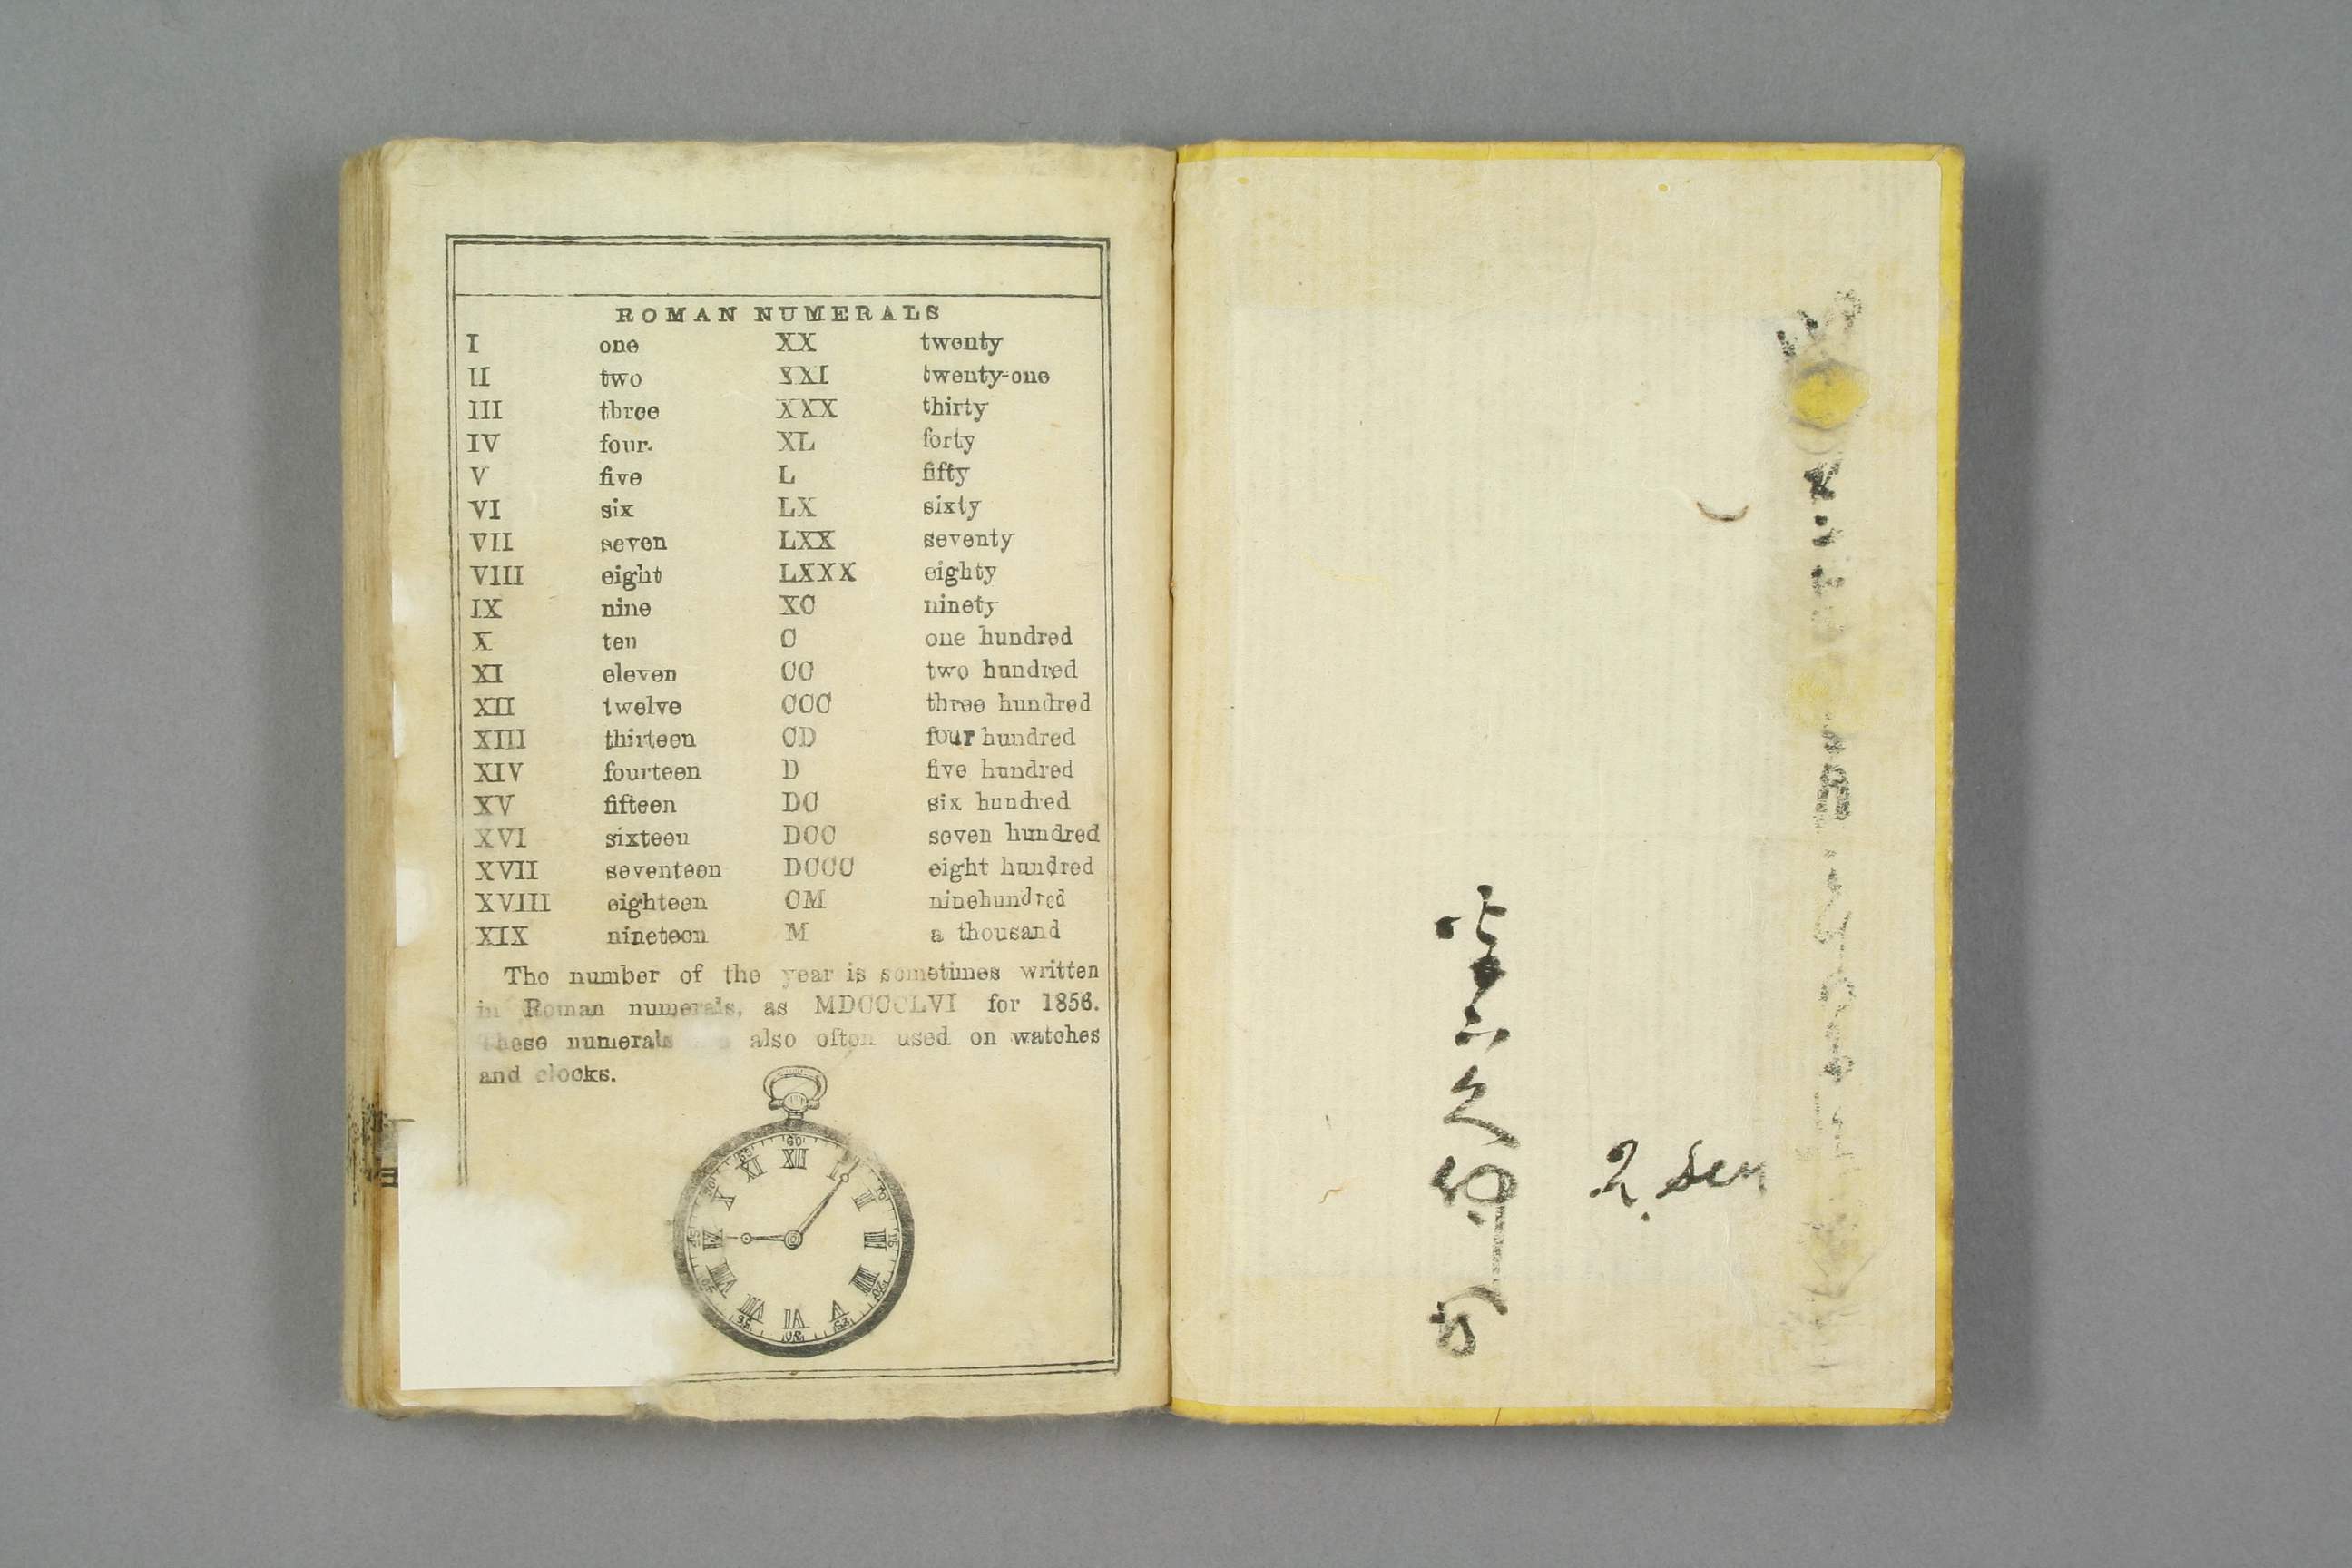 ROMAN NUMERALS
I one XX twenty
II two XXI twenty-one
III three XXX thirty
IV four. XL forty
V five L fifty
VI six LX sixty
VII seven LXX seventy
VIII eight LXXX eighty
IX nine XC ninety
X ten C one hundred
XI eleven CC two hundred
XII twelve CCC three hundred
XIII thirteen CD four hundred
XIV fourteen D five hundred
XV fifteen DC six hundred
XVI sixteen DCC seven hundred
XVII seventeen DCCC eight hundred
XVIII eighteen CM ninehundred
XIX nineteen M a thousand
The number of the year is sometimes written
in Roman numerals, as MDCCCLVI for 1856.
These numerals also often used on watches
and clocks.
60
XII I II III IIII V VI VII VIII IX X XI
2 sen